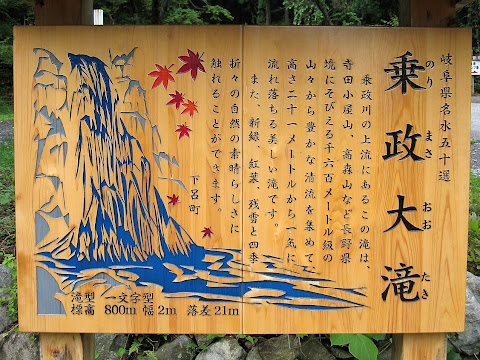 岐阜県名水五十選
乗政大滝
のり まさ おお たき
乗政川の上流にあるこの滝は、
寺田小屋山、高森山など長野県
境にそびえる千六百メートル級の
山々から豊かな清流を集めて、
高さ二十一メートルから一気に
流れ落ちる美しい滝です。
また、新緑、紅葉、残雪と四季
折々の自然の素晴らしさに
触れることができます。
下呂町
滝型 一文字型
標高 800m 幅2m 落差21m